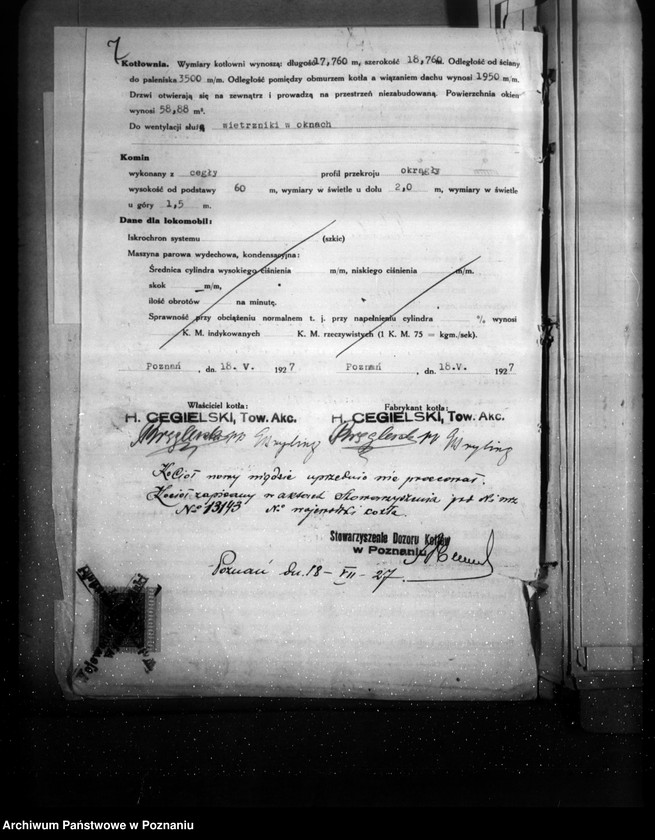 7
Kotłownia. Wymiary kotłowni wynoszą: długość 17,760 m, szerokość 18,760 m. Odległość od ściany
do paleniska 3500 m/m. Odległość pomiędzy obmurzem kotła a wiązaniem dachu wynosi 1950 m/m.
Drzwi otwierają się na zewnątrz i prowadzą na przestrzeń niezabudowaną. Powierzchnia okien
wynosi 58,88 m².
Do wentylacji służą wietrzniki w oknach
Komin
wykonany z cegły profil przekroju okrągły
wysokość od podstawy 60 m, wymiary w świetle u dołu 2,0 m, wymiary w świetle
u góry 1,5 m.
Dane dla lokomobil:
Iskrochron systemu (szkic)
Maszyna parowa wydechowa, kondensacyjna:
Średnica cylindra wysokiego ciśnienia m/m, niskiego ciśnienia m/m.
skok m/m,
ilość obrotów na minutę.
Sprawność przy obciążeniu normalnem t. j. przy napełnieniu cylindra % wynosi
K. M. indykowanych K. M. rzeczywistych (1 K. M. 75 = kgm./sek).
Poznań, dn. 18. V. 1927 Poznań, dn. 18.V. 1927
Właściciel kotła: Fabrykant kotła:
H. CEGIELSKI, Tow. Akc. H. CEGIELSKI, Tow. Akc.
Kocioł nowy nigdzie uprzednio nie pracował.
Kocioł zapisany w aktach Stowarzyszenia pod
No 13143 kotła.
Stowarzyszenie Dozoru Kotłów
w Poznaniu
Poznań dn. 18 - VII - 27.
Archiwum Państwowe w Poznaniu